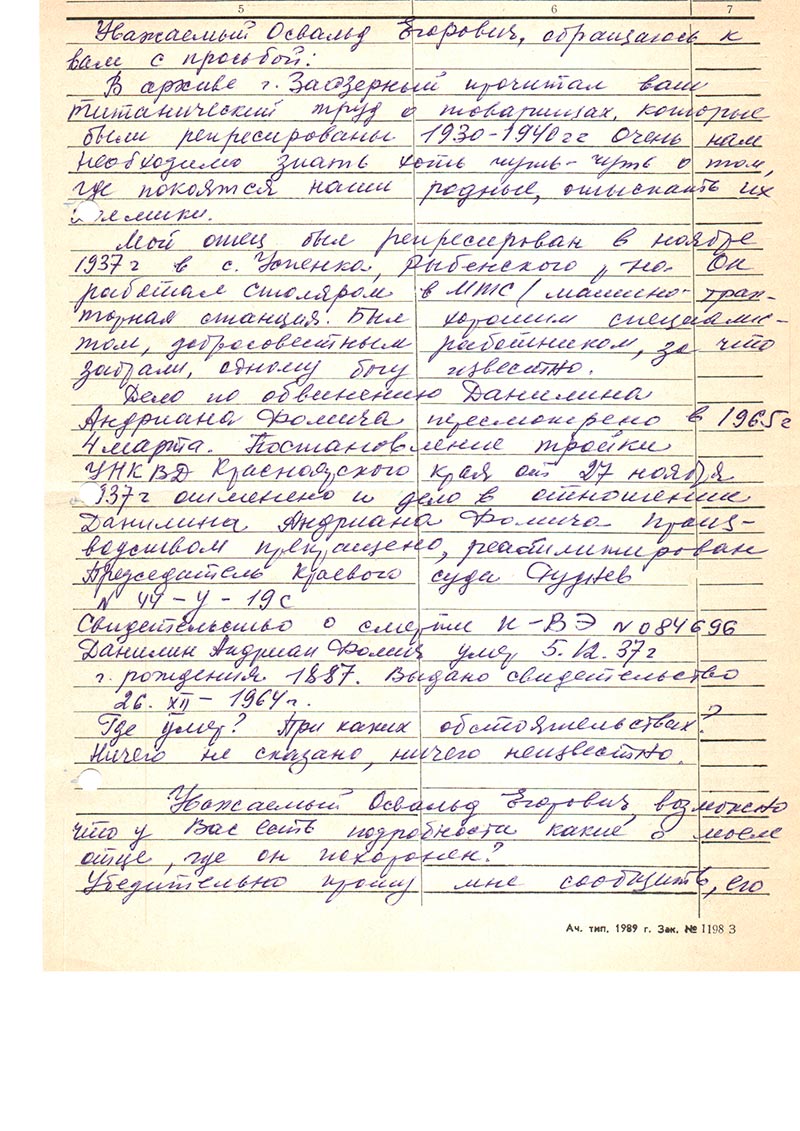 5 6 7
Уважаемый Освальд Егорович, обращаюсь к
вам с просьбой:
В архиве г. Заозерный прочитал ваш
титанический труд о товарищах, которые
были репресированы 1930-1940гг Очень нам
необходимо знать хоть чуть-чуть о том,
где покоятся наши родные, отыскать их
Мой отец был репресирован в ноябре
1937г в с. Успенка, Рыбенского р-на. Он
работал столяром в МТС (машино-трак-
торная станция. Был хорошим специалис-
том, добросовестным работником, за что
забрали, одному богу известно.
Дело по обвинению Данилина
Андриана Фомича пересмотрено в 1965г
4 марта. Постановление тройки
УНКВД Красноярского края от 27 ноября
937г отменено и дело в отношении
Данилина Андриана Фомича произ-
водством прекращено, реабилитирован
Председатель Краевого суда
N 44-у-19с
Свидетельство о смерти II-ВЭ N 084696
Данилин Андриан Фомич умер 5.12.37г
г. рождения 1887. Выдано свидетельство
26. XII - 1964г.
Где умер? При каких обстоятельствах?
Ничего не сказано, ничего неизвестно.
Уважаемый Освальд Егорович, возможно
что у Вас есть подробности какие о моем
отце, где он похоронен?
Убедительно прошу мне сообщить, его
Ач. тип. 1989 г. Зак. № 1198 З